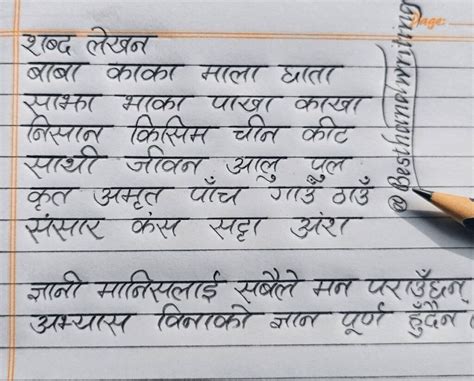 Page:
शब्द लेखन
बाबा काका माला छाता
साझा भाका पाखा काखा
निसान किसिम चीन कीट
साथी जीवन आलु पुल
कृत अमृत पाँच गाउँ ठाउँ
संसार कंस सट्टा अंश
ज्ञानी मानिसलाई सबैले मन पराउँछन्
अभ्यास विनाको ज्ञान पूर्ण हुँदैन।
@Besthandwriting